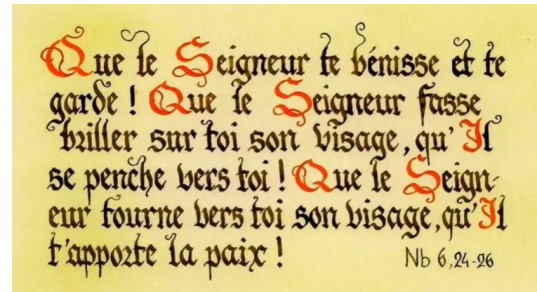 Que le Seigneur te bénisse et te
garde ! Que le Seigneur fasse
briller sur toi son visage, qu'Il
se penche vers toi ! Que le Seign-
eur tourne vers toi son visage, qu'Il
t'apporte la paix !
Nb 6,24-26